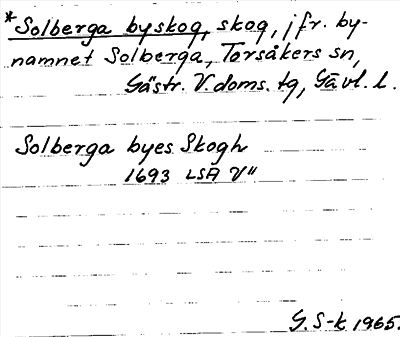 *Solberga byskog, skog, jfr. by-
namnet Solberga, Torsåkers sn,
Gästr. V. doms. tg, Gävl. l.
Solberga byes Skogh
1693 LSA V"
G. S-k 1965.